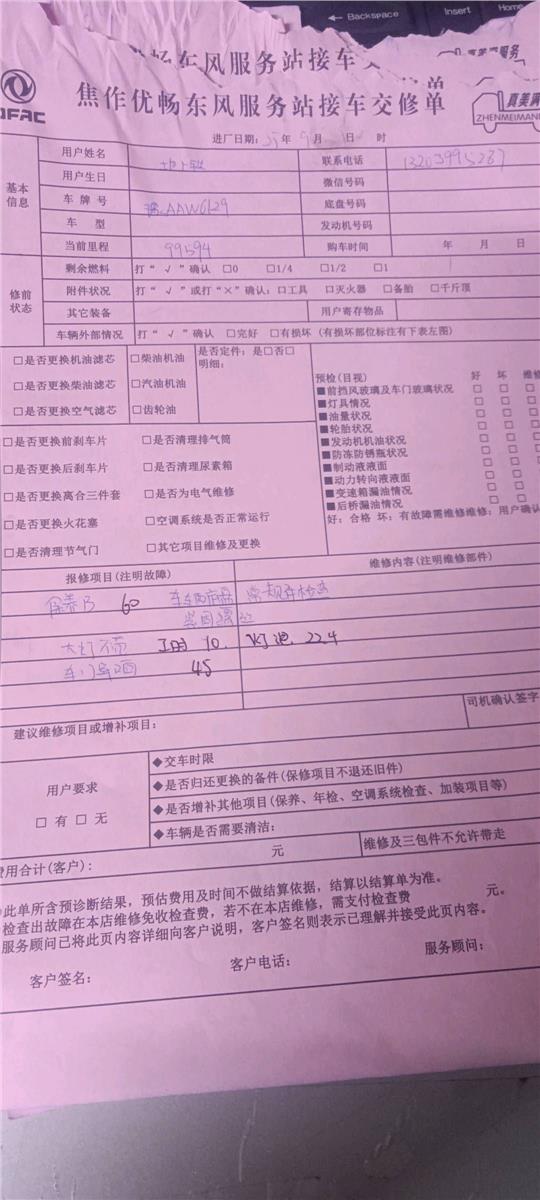 ← Backspace
Insert
Home
东风服务站接车
焦作优畅东风服务站接车交修单
DFAC
真美
ZHENMEIMAN
进厂日期: 年 9月 日 时
基本信息
用户姓名
联系电话 13203995287
用户生日
微信号码
车牌号 豫AAW6129
底盘号码
车型
发动机号码
当前里程 99594
购车时间 年 月 日
修前状态
剩余燃料 打“√”确认 □0 □1/4 □1/2 □1
附件状况 打“√”或打“×”确认:□工具 □灭火器 □备胎 □千斤顶
其它装备
用户寄存物品
车辆外部情况 打“√”确认 □完好 □有损坏(有损坏部位标注有下表左图)
□是否更换机油滤芯 □柴油机油
□是否更换柴油滤芯 □汽油机油
□是否更换空气滤芯 □齿轮油
是否定件:是□否□
明细:
□是否更换前刹车片 □是否清理排气筒
□是否更换后刹车片 □是否清理尿素箱
□是否更换离合三件套 □是否为电气维修
□是否更换火花塞 □空调系统是否正常运行
□是否清理节气门 □其它项目维修及更换
预检(目视) 好 坏 维修
■前挡风玻璃及车门玻璃状况 □ □
■灯具情况 □ □
■油量状况 □ □
■轮胎状况 □ □
■发动机机油状况 □ □
■防冻防锈瓶状况 □ □
■制动液液面 □ □
■动力转向液液面 □ □
■变速箱漏油情况 □ □
■后桥漏油情况 □ □
好:合格 坏:有故障需维修维修:用户确认
报修项目(注明故障)
维修内容(注明维修部件)
保养B 60 常规件检查
大灯不亮 工时 10. 灯泡 22.4
45
建议维修项目或增补项目:
司机确认签字
用户要求
□ 有 □ 无
◆交车时限
◆是否归还更换的备件(保修项目不退还旧件)
◆是否增补其他项目(保养、年检、空调系统检查、加装项目等)
◆车辆是否需要清洁:
元
维修及三包件不允许带走
费用合计(客户):
此单所含预诊断结果,预估费用及时间不做结算依据,结算以结算单为准。
检查出故障在本店维修免收检查费,若不在本店维修,需支付检查费 元。
服务顾问已将此页内容详细向客户说明,客户签名则表示已理解并接受此页内容。
客户签名:
客户电话:
服务顾问: